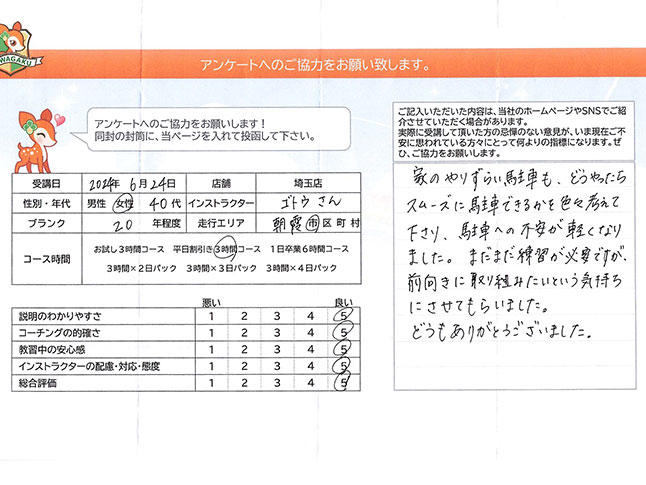 WAGAKU
アンケートへのご協力をお願い致します。
アンケートへのご協力をお願いします！
同封の封筒に、当ページを入れて投函して下さい。
ご記入いただいた内容は、当社のホームページやSNSでご紹
介させていただく場合があります。
実際に受講して頂いた方の忌憚のない意見が、いま現在ご不
安に思われている方々にとって何よりの指標になります。ぜ
ひ、ご協力をお願いします。
受講日 2024年 6月24日 店舗 埼玉店
性別・年代 男性 女性 40代 インストラクター ゴトウさん
ブランク 20 年程度 走行エリア 朝霞 市 区 町 村
コース時間
お試し3時間コース 平日割引き3時間コース 1日卒業6時間コース
3時間×2日パック 3時間×3日パック 3時間×4日パック
悪い 良い
説明のわかりやすさ 1 2 3 4 5
コーチングの的確さ 1 2 3 4 5
教習中の安心感 1 2 3 4 5
インストラクターの配慮・対応・態度 1 2 3 4 5
総合評価 1 2 3 4 5
家のやりずらい駐車も、どうやったら
スムーズに駐車できるかを色々考えて
下さり、駐車への不安が軽くなり
ました。まだまだ練習が必要ですが、
前向きに取り組みたいという気持ち
にさせてもらいました。
どうもありがとうございました。